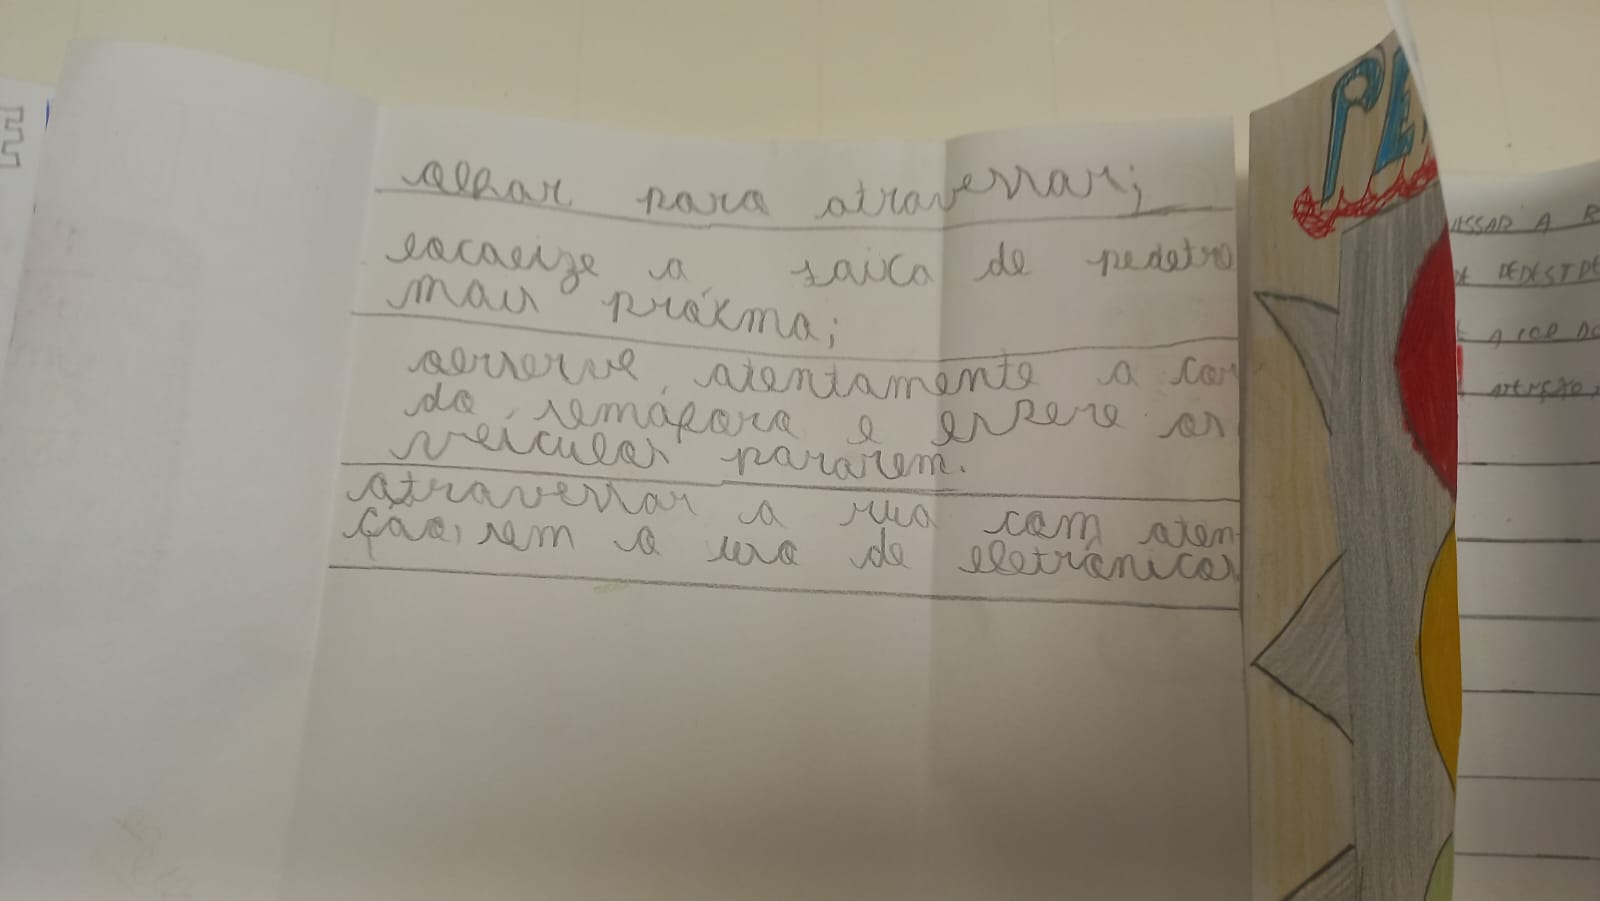 olhar para atravessar;
localize a faixa de pedetre
mais próxma;
oerserve atentamente a cor
do semáforo e espere os
veículos pararem.
atravessar a rua com aten
ção, sem o uso de eletrônicos
PE
ASSAR A R
DE PEDESTRE
A COR DO
ATENÇÃO,